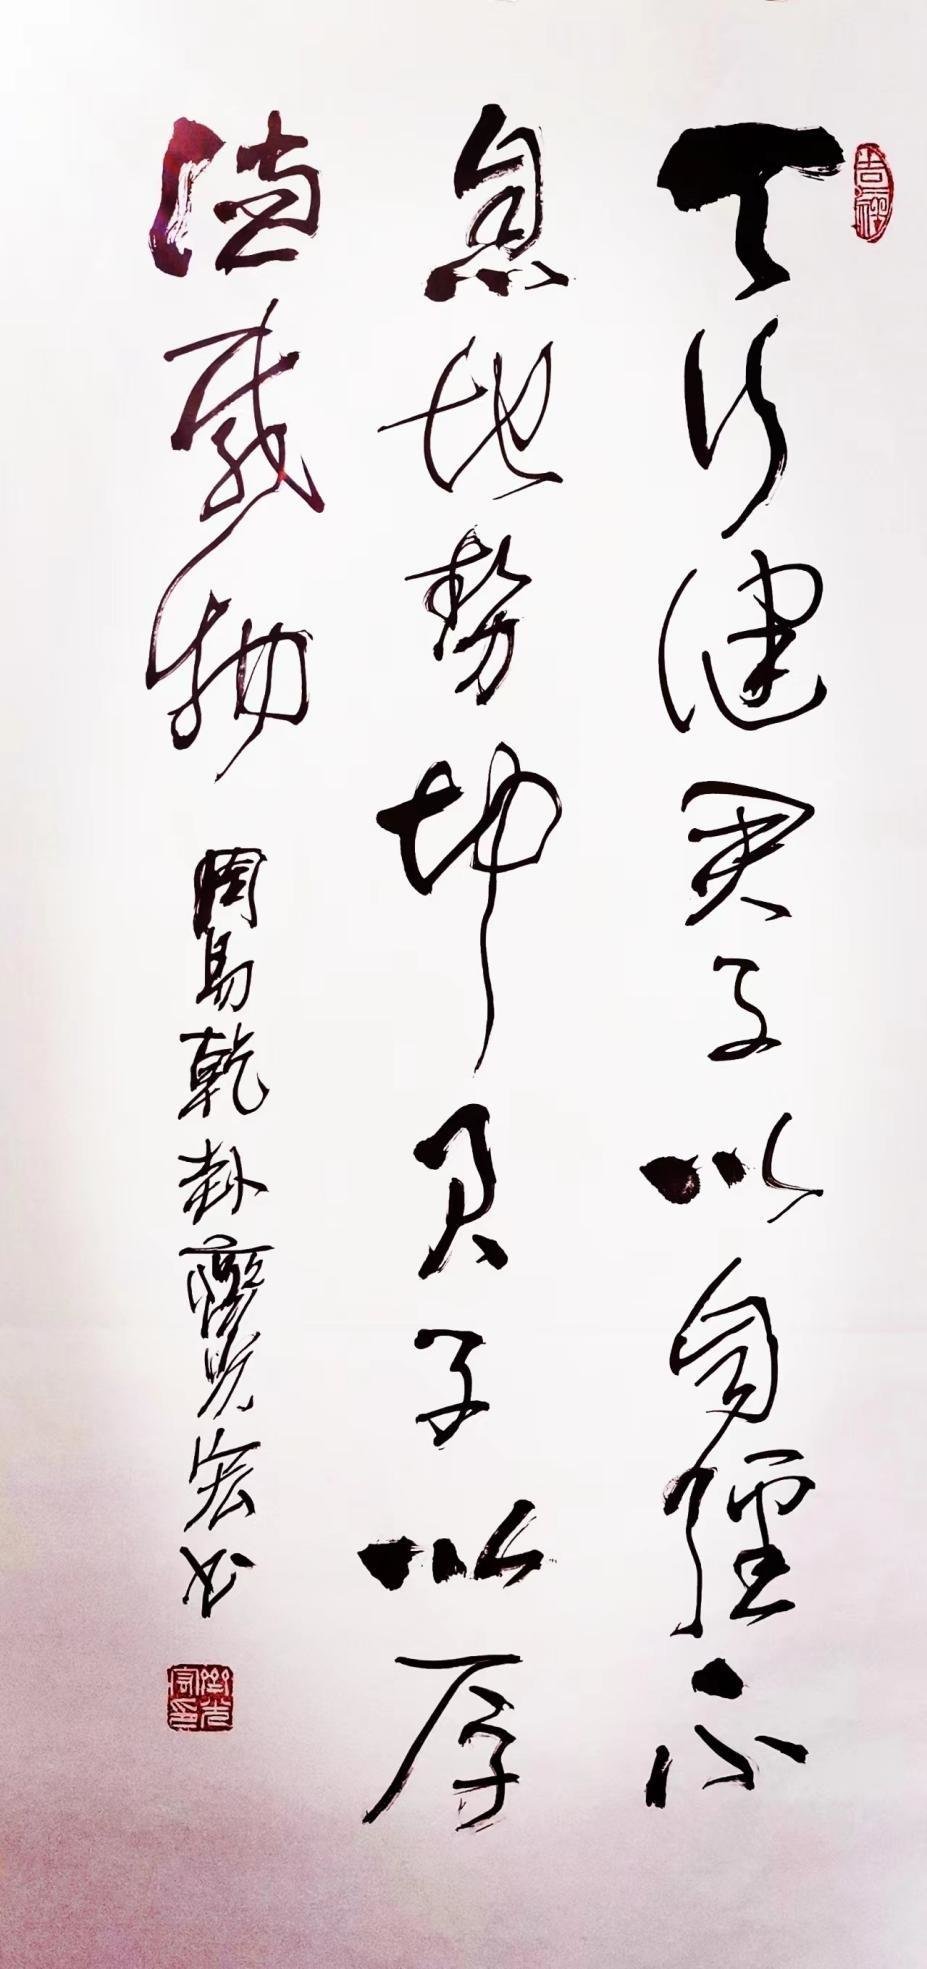 天行健君子以自强不
息地势坤君子以厚
德载物
周易乾卦 光宏书
吉祥